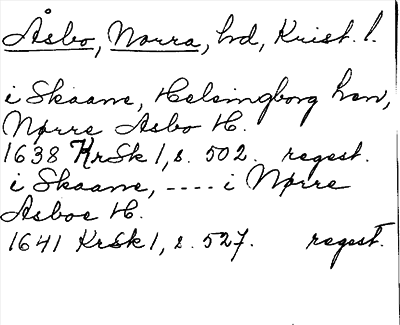 Åsbo, Norra, hd, Krist. l.
i Skaane, Helsingborg len,
Nørre Asbo H.
1638 KrSk 1, s. 502. regest.
i Skaane, ---- i Nørre
Asboe H.
1641 KrSk 1, s. 527. regest.